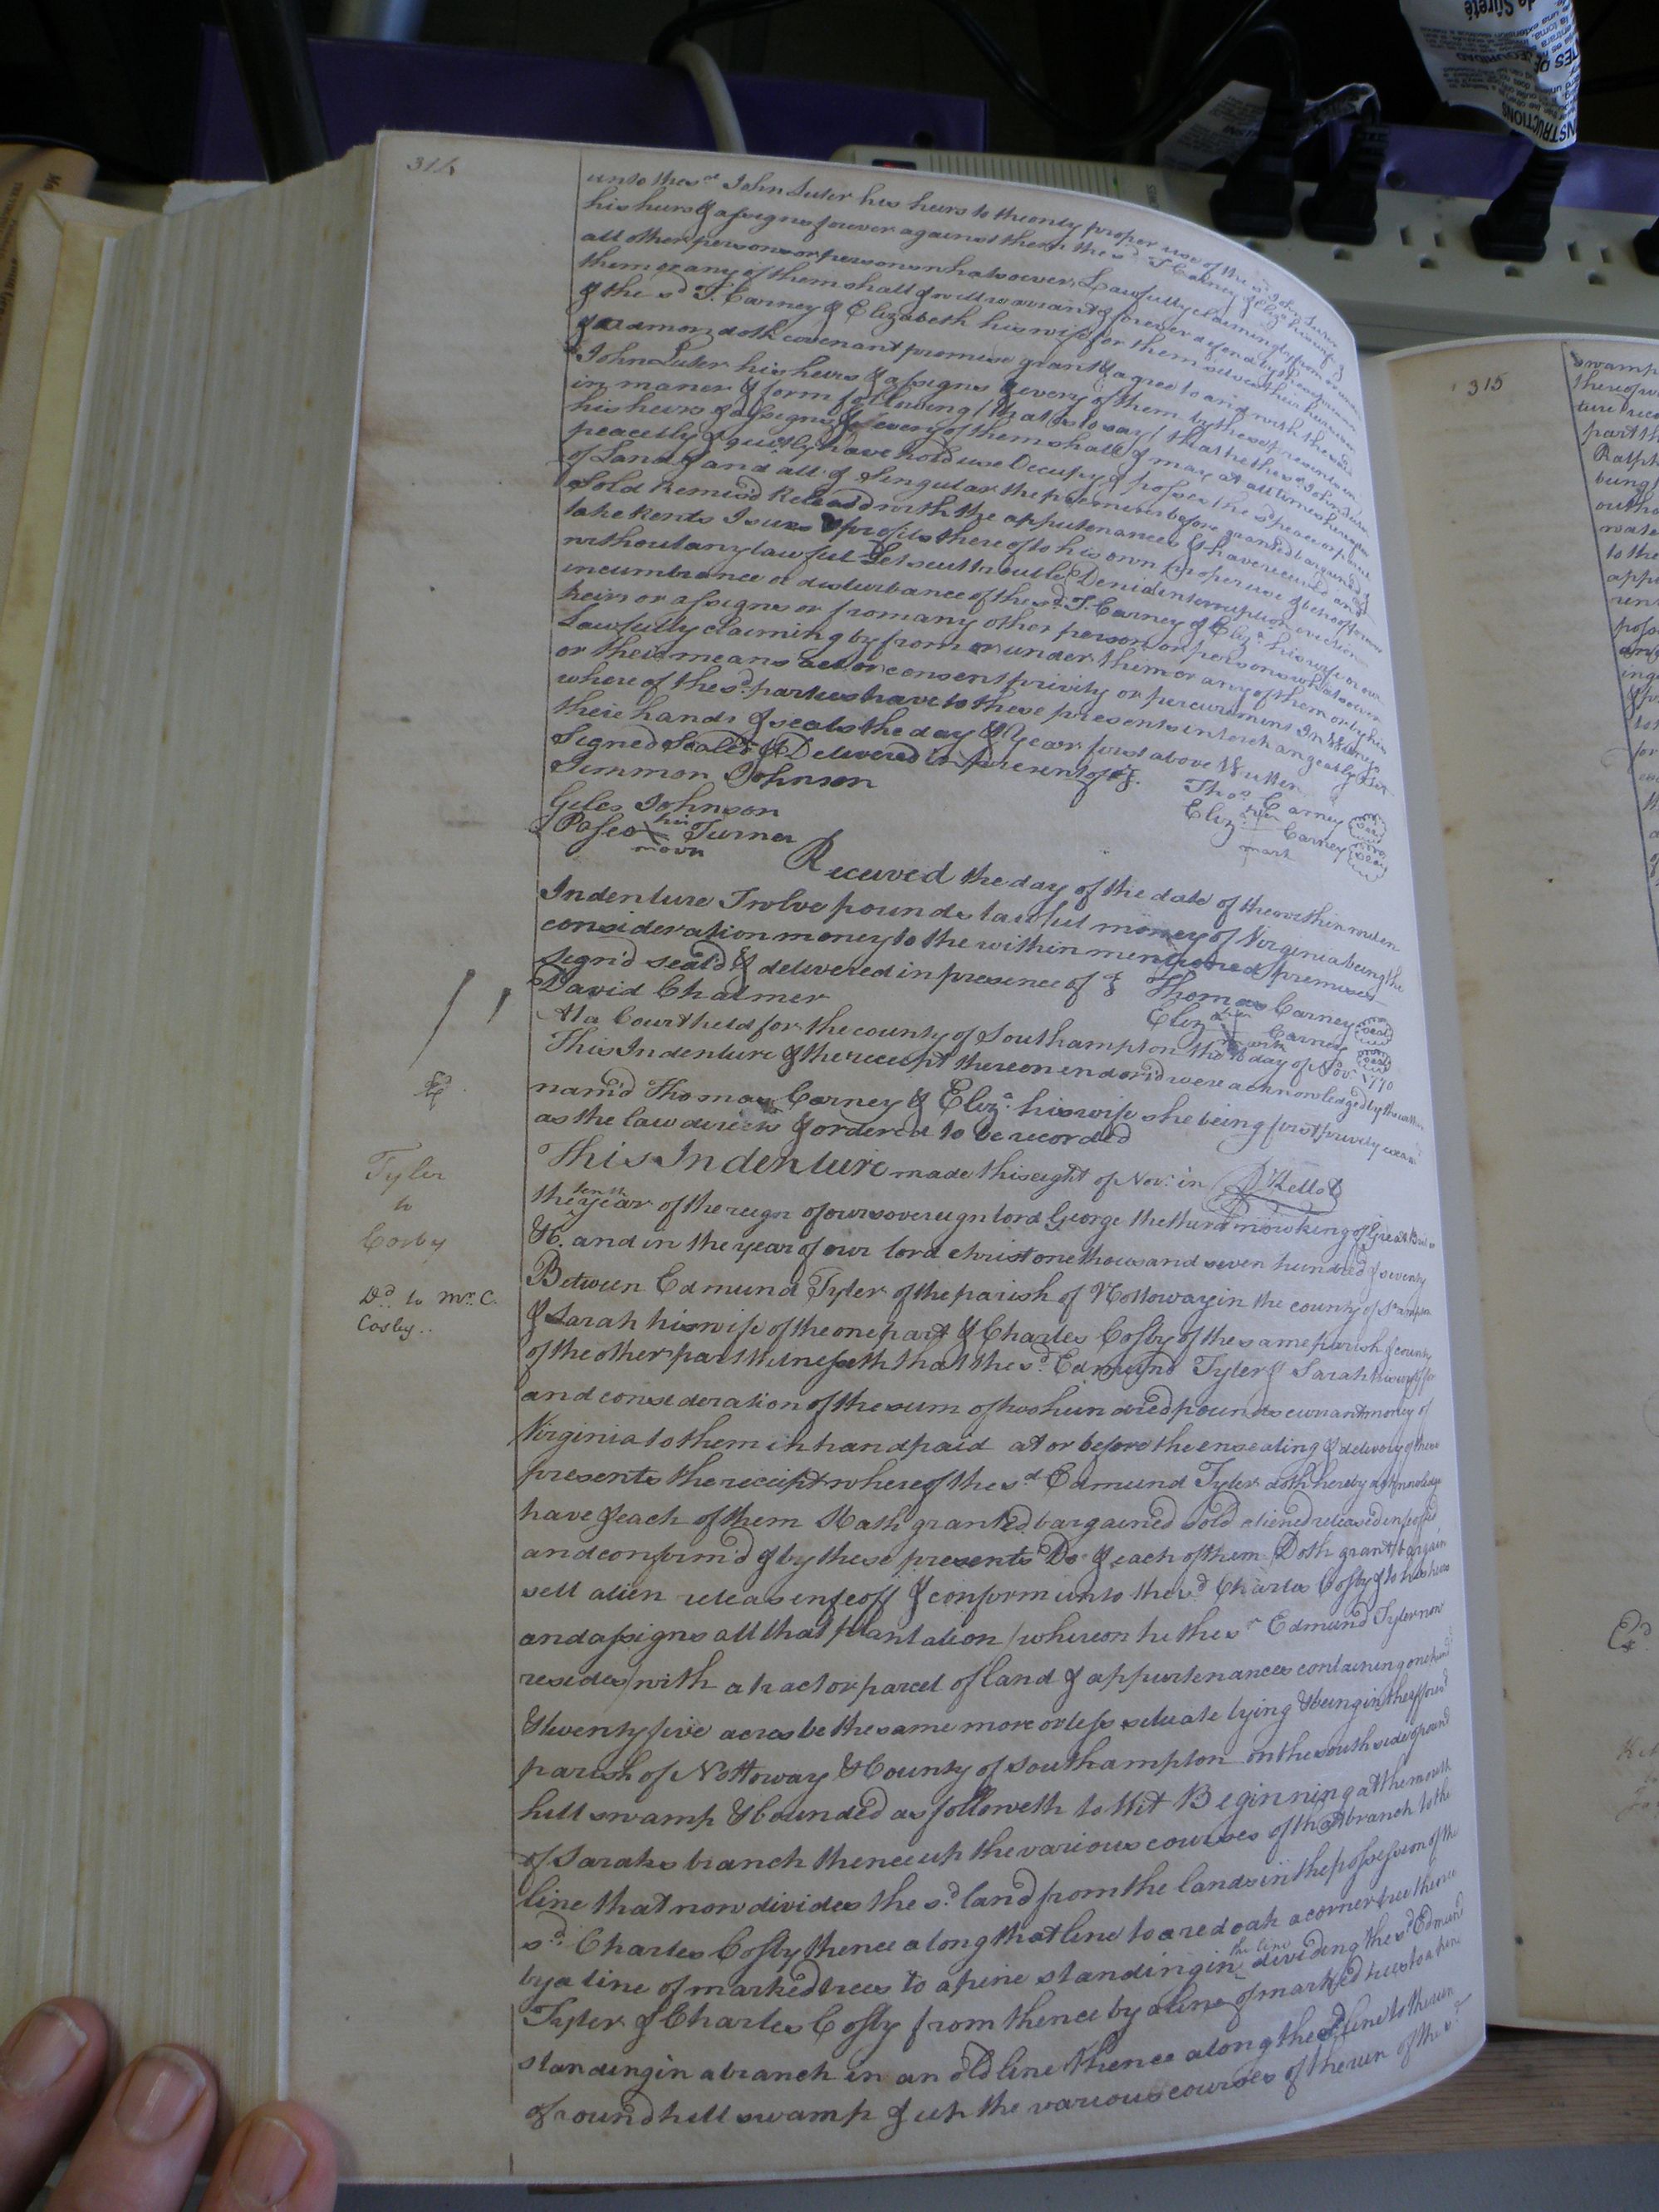 314
unto the sd John Luter his heirs to the only proper use of the sd John Luter
his heirs & assigns forever against them the sd T Carney & Eliz his wife &
all other persons or persons whatsoever Lawfully claiming by from or under
them or any of them shall & will warrant & forever defend by these presents
& the sd T. Carney & Elizabeth his wife for them selves their heirs
& admors doth covenant promise grant & agree to and with the said
John Luter his heirs & assigns & every of them by these presents in
in maner & form following (that is to say) that he the sd John Luter
his heirs & assigns & every of them shall & may at all times hereafter
peaceably & quietly have hold use Occupy & posses the sd peace or parcel
of Land & and all & Singular the premises before granted bargained
Sold Remis'd Releasd with the appurtenances & have receive and
take Rents Isues & profits thereof to his own proper use & behoof forever
without any lawful Let suit trouble Denial interruption eviction
incumbrance or disturbance of the sd T. Carney & Eliza his wife or our
heirs or assigns or from any other person or persons whatsoever
Lawfully claiming by from or under them or any of them or by his
or their means act or consent privity or percurement In Witness
where of the sd parties have to these presents interchangeably Set
their hands & seals the day & Year first above Written
Signed Sealed & Delivered in present of
Simmon Johnson
Thos Carney Seal
Giles Johnson
Eliz her Carney Seal
mark
his
Turner
mark
Received the day of the date of the within writen
Indenture Twelve pounds lawful money of Virginia being the
consideration money to the within mentioned premises
Sign'd seal'd & delivered in presence of
Thomas Carney Seal
David Chalmer
Eliz her Carney Seal
mark
At a Court held for the county of Southampton the day of Nov: 1770
This Indenture & the receipt thereon endors'd were acknowledged by the within
nam'd Thomas Carney & Eliz.a his wife she being first privily exam'd
as the law directs & ordered to be recorded
Tyler
to
Cosby
Dd. to Mr. C.
Cosby..
This Indenture made this eight of Nov: in R Kello
the tenth year of the reign of our sovereign lord George the third now king of Great Brit
&c. and in the year of our lord christ one thousand seven hundred & seventy
Between Edmund Tyler of the parish of Nottoway in the county of
& Sarah his wife of the one part & Charles Cosby of the same parish & county
of the other part Witnesseth that the sd. Edmund Tyler & Sarah his wife for
and consideration of the sum of two hundred pounds currant money of
Virginia to them in hand paid at or before the ensealing & delivery of these
presents the receipt whereof the sd Edmund Tyler doth hereby acknowledge
have & each of them Hath granted bargained sold aliened released infeoffed
and confirm'd & by these presents Do & each of them Doth grant bargain
sell alien releas enfeoff & conform unto the sd Charles Cosby & to his heirs
and assigns all that plantation (whereon he the sd Edmund Tyler now
resides) with a tract or parcel of land & appurtenances containing one hund
& twenty five acres be the same more or less situate lying & being in the afforesd
parish of Nottoway & County of Southampton on the south side of round
hill swamp & bounded as followeth to Wit Beginning at the mouth
of Sarahs branch thence up the various courses of the sd branch to the
line that now divides the sd land from the lands in the possession of the
sd. Charles Cosby thence along that line to a red oak a corner tree thence
by a line of marked trees to a pine standing in the line dividing the sd Edmund
Tyler & Charles Cosby from thence by a line of marked trees to a pine
standing in a branch in an old line thence along the sd line to the run
of round hill swamp & up the various courses of the run of the sd
315
swamp
ture
Ralph
being
to the